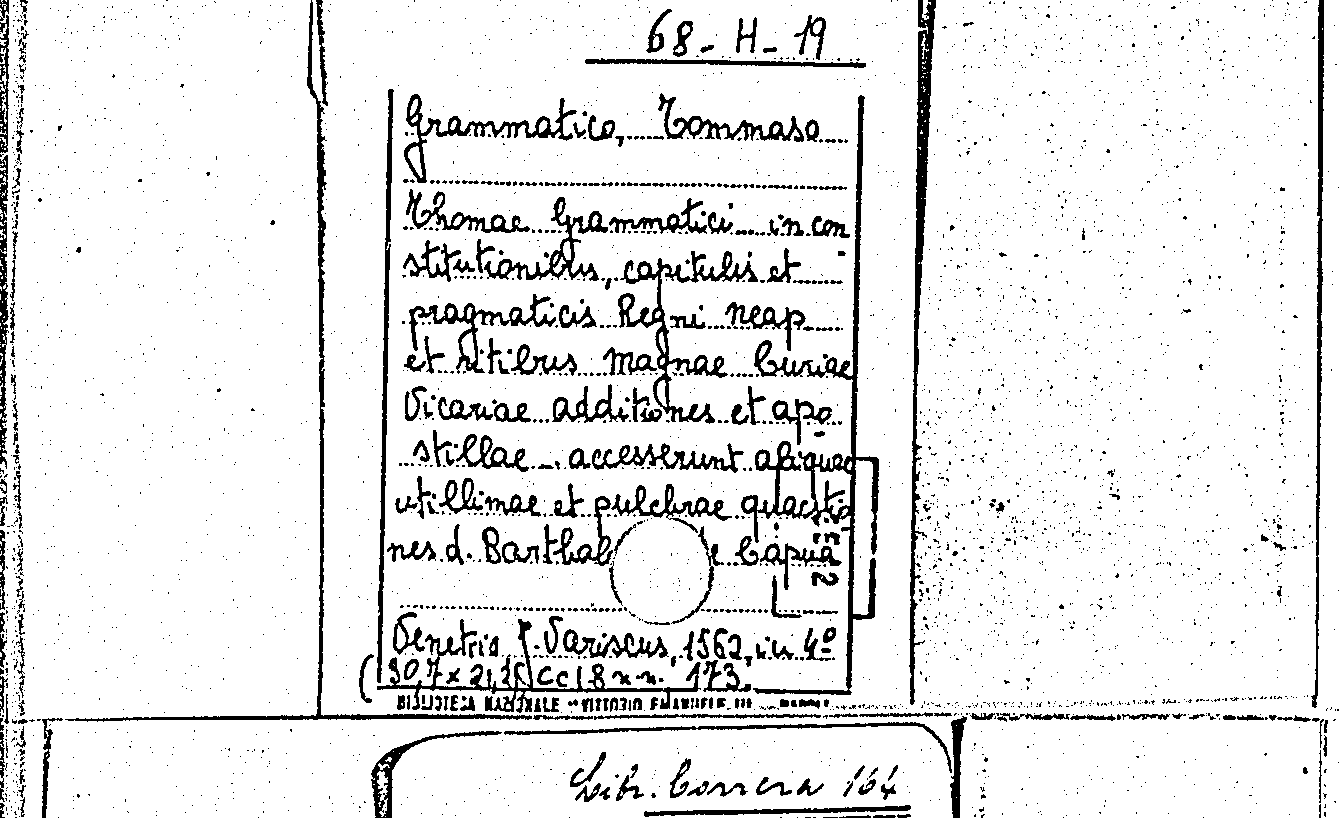 68 - H - 19
Grammatico, Tommaso
Thomae Grammatici in con
stitutionibus, capitulis et
pragmaticis Regni neap
et ritibus magnae Curiae
Vicariae additiones et apo
stillae ... accesserunt aliquae
utillimae et pulchrae quaestio
nes d. Barthol e Capua
Venetiis J. Variscus, 1562, in 4º
(30,7 x 21,2) cc 18 n.n. 173.
BIBLIOTECA NAZIONALE "VITTORIO EMANUELE III
Libr. Correra 164